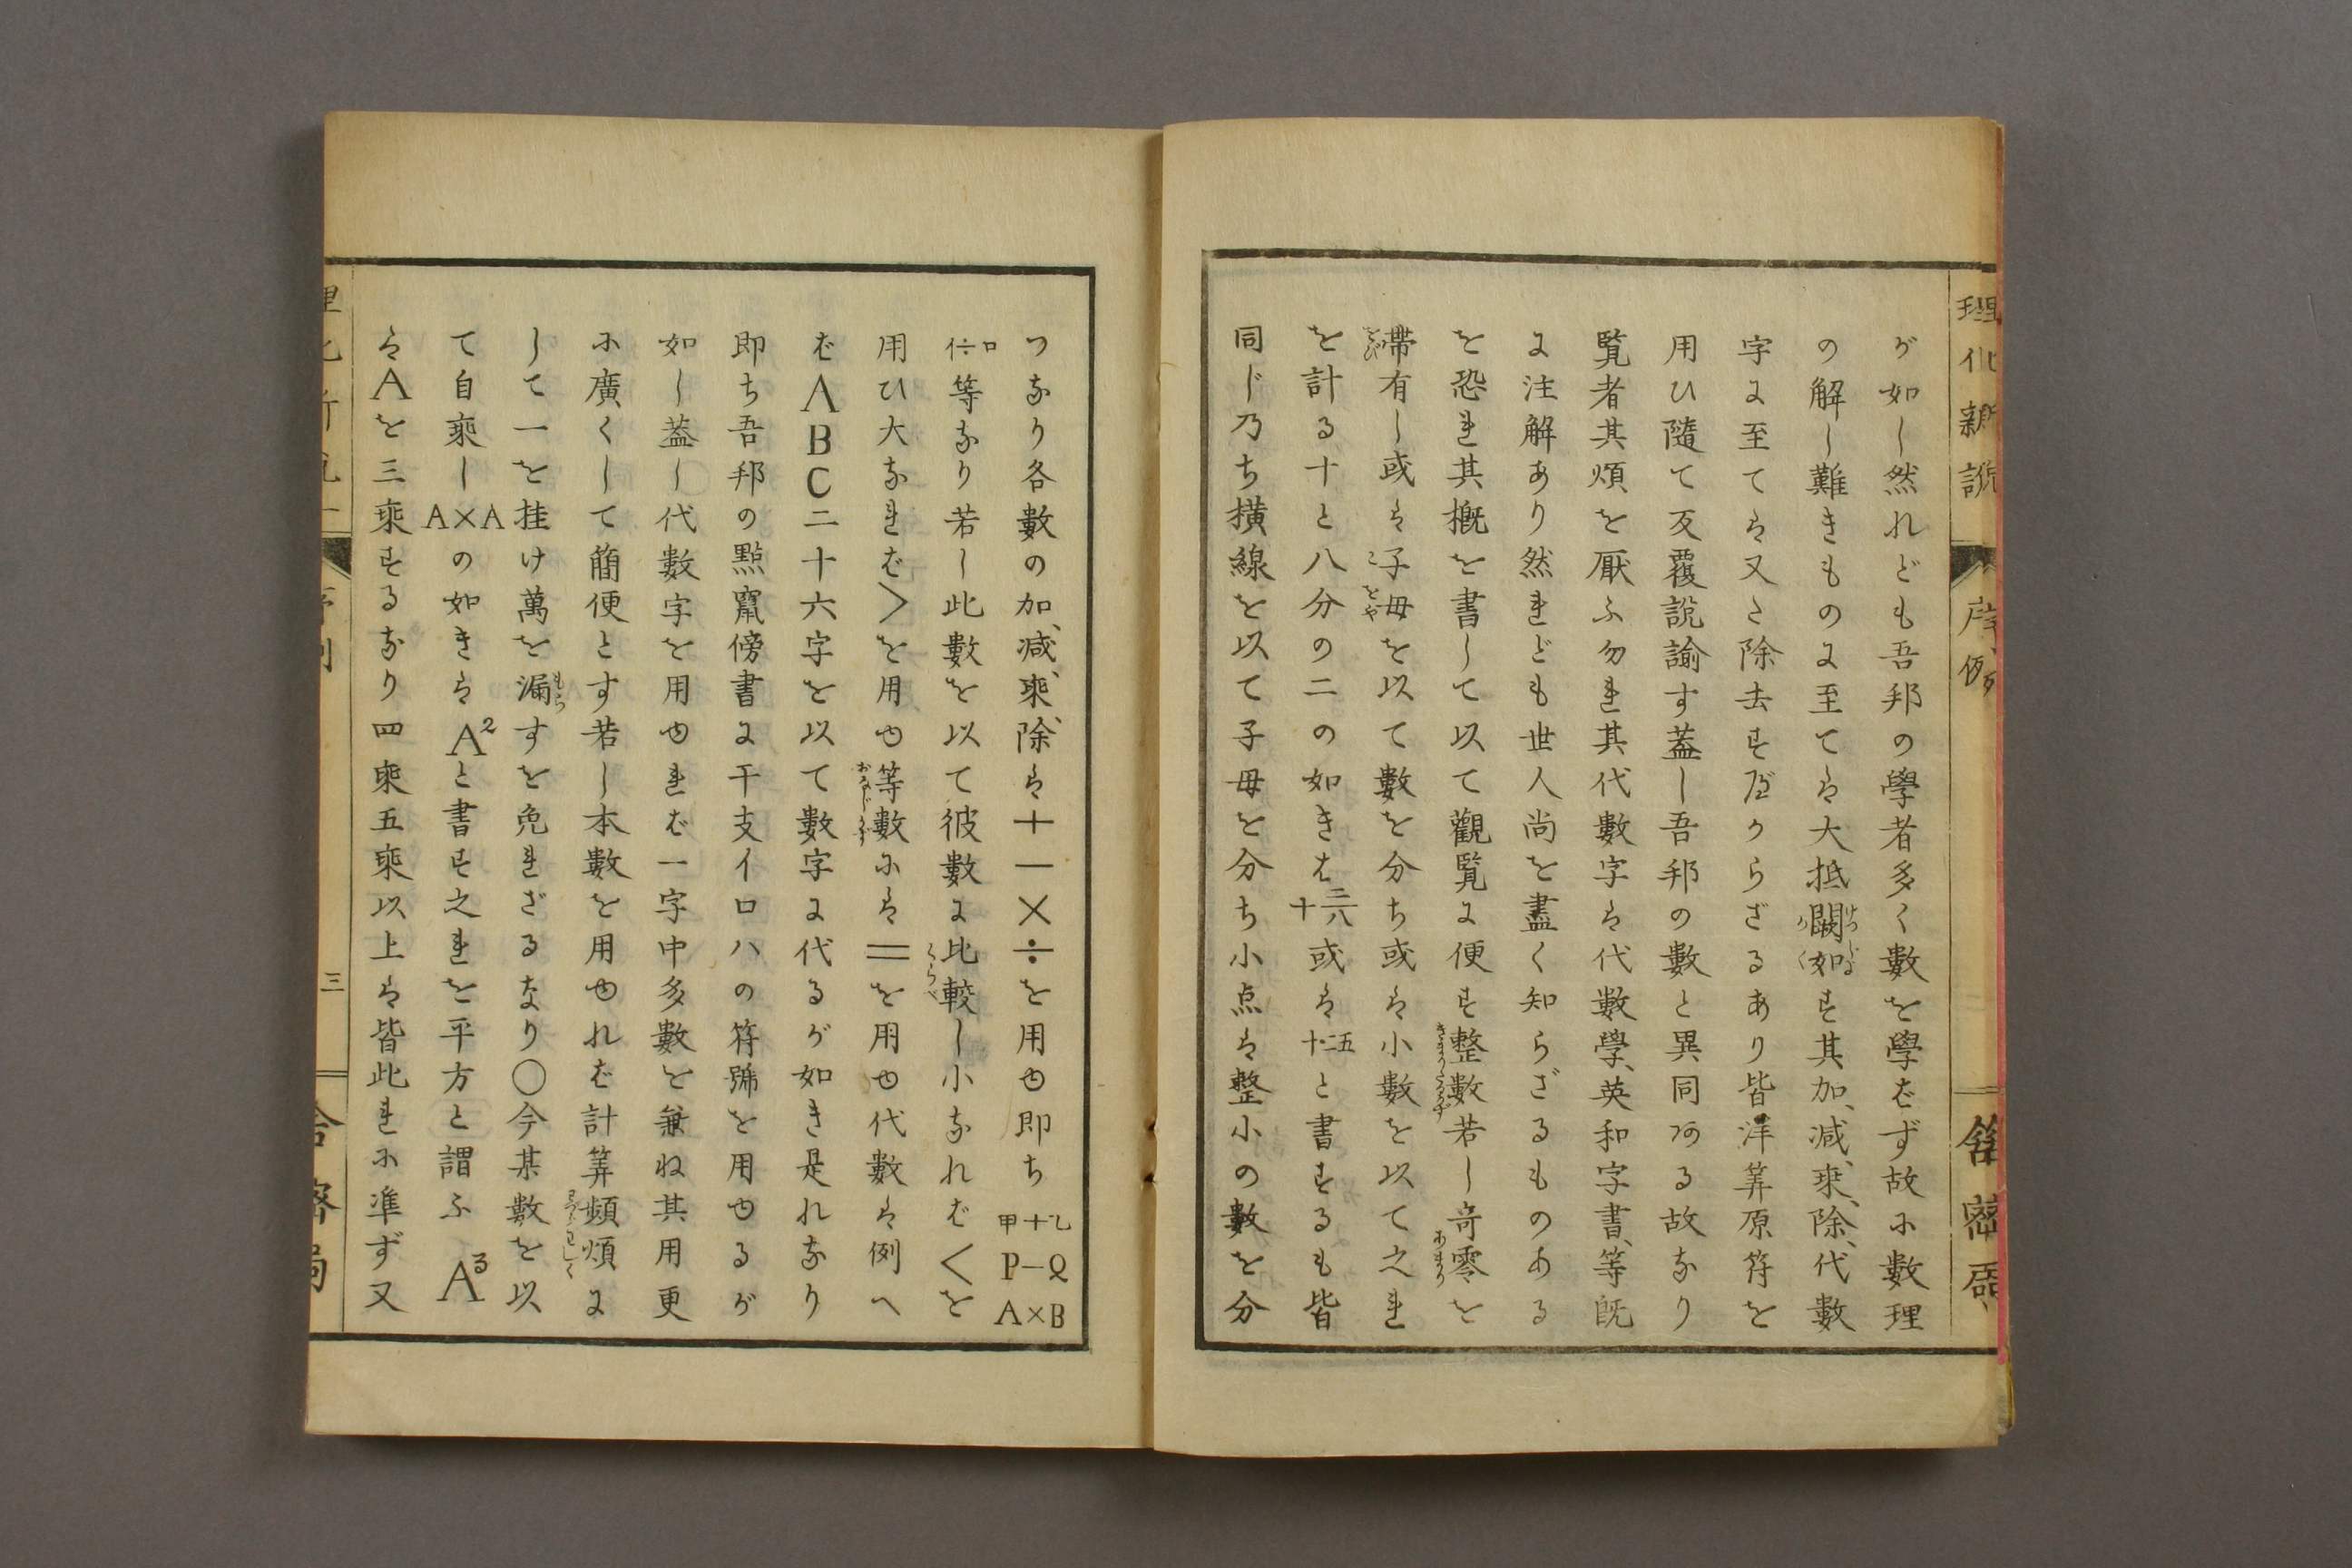 理化新説
序例
舍密局
が如し然れども吾邦の學者多く數を學ばず故に數理
の解し難きものに至てハ大抵闕如す其加、减、乗、除、代數
字に至てハ又た除去す可からざるあり皆洋筭原符を
用ひ隨て反覆説諭す蓋し吾邦の數と異同ある故なり
覧者其煩を厭ふ勿れ其代數字ハ代數學、英和字書、等既
に注解あり然れども世人尚を盡く知らざるものある
を恐れ其概を書して以て觀覧に便す整數若し竒零を
帶有し或ハ子母を以て數を分ち或ハ小數を以て之れ
を計る十と八分の二の如きは十二八或ハ十二五と書するも皆
同じ乃ち横線を以て子母を分ち小点ハ整小の數を分
つなり各數の加、减、乘、除ハ＋－×÷を用ゆ即ち甲＋乙P－QA×B
イ÷ロ等なり若し此數を以て彼數に比較し小なれば＜を
用ひ大なれば＞を用ゆ等數にハ＝を用ゆ代數ハ例へ
ばABC二十六字を以て數字に代るが如き是れなり
即ち吾邦の點竄傍書に干支イロハの符號を用ゆるが
如し蓋し代數字を用ゆれば一字中多數を兼ね其用更
に廣くして簡便とす若し本數を用ゆれば計筭頻煩に
して一を挂け萬を漏すを免れざるなり○今某數を以
て自乘しA×Aの如きハA²と書す之れを平方と謂ふA³
ハAを三乘するなり四乘五乘以上ハ皆此れに準ず又
序例
三